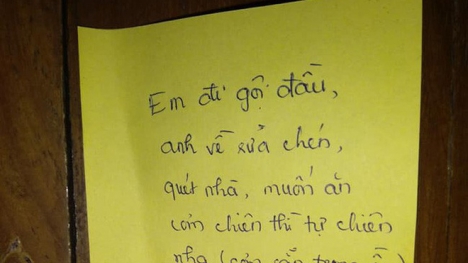 Em đi gội đầu,
anh về rửa chén,
quét nhà, muốn ăn
cơm chiên thì tự chiên
nha (cơm sẵn trong